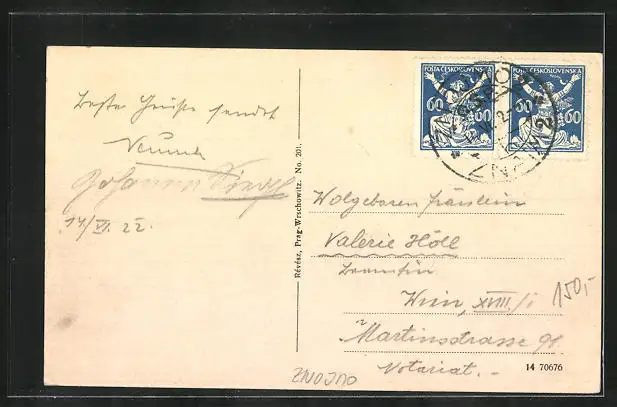 Beste Grüße sendet
Johanna
14/VI. 22.
Révész, Prag-Wrschowitz. No. 201.
POŠTA ČESKOSLOVENSKÁ
60 60
POŠTA ČESKOSLOVENSKÁ
60 60
ZNOJM 2
Wolgeboren Fräulein
Valerie Höll
Beamtin
Wien, XVIII/1
Martinsstrasse 91.
Notariat.-
150,-
14 70676
ZNOJMO